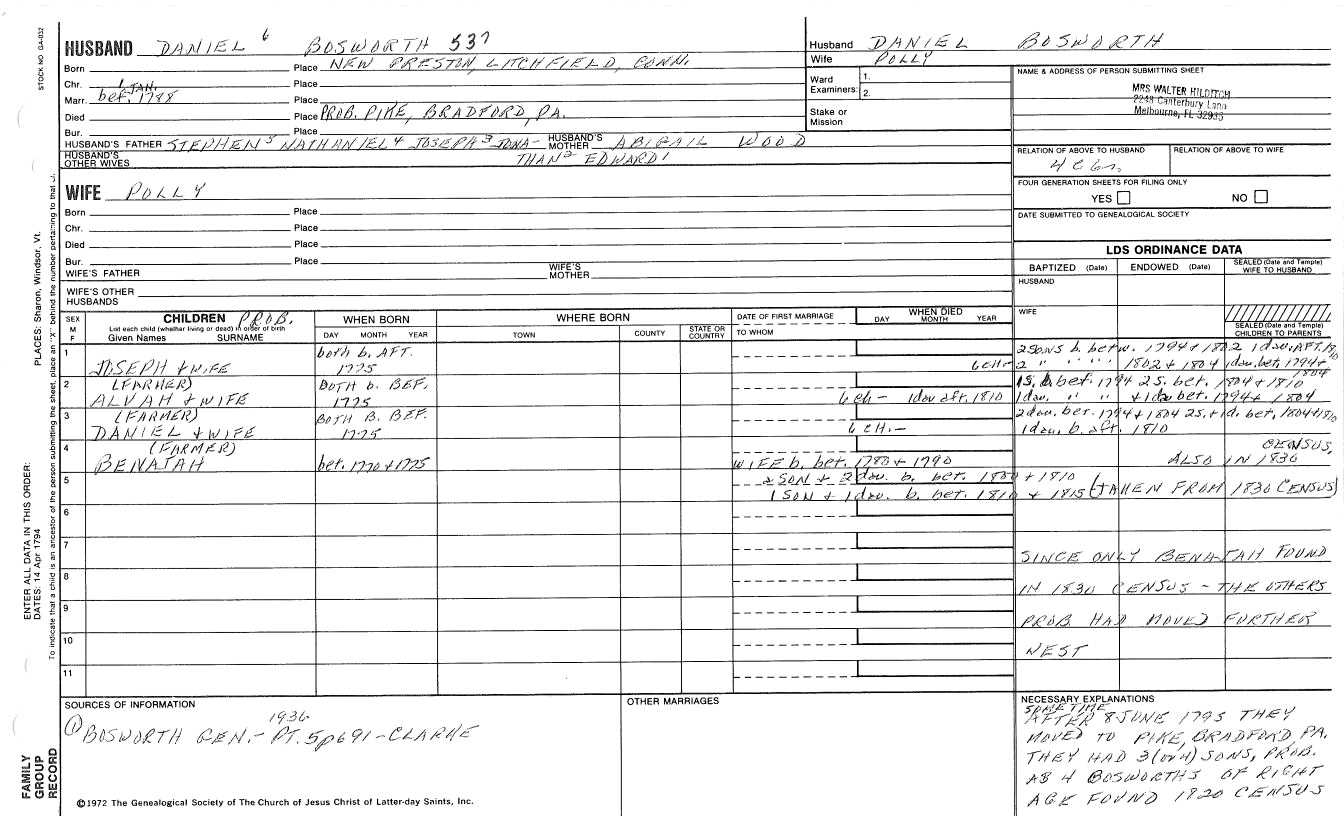 STOCK NO GA-032
HUSBAND DANIEL 6 BOSWORTH 537
Born Place NEW PRESTON, LITCHFIELD, CONN.
Chr. Place
Marr. bef. 1 JAN. 1788 Place
Died Place PROB. PIKE, BRADFORD, PA.
Bur. Place
HUSBAND'S FATHER STEPHEN 5 NATHANIEL 4 JOSEPH 3 JONA- HUSBAND'S MOTHER ABIGAIL WOOD
HUSBAND'S OTHER WIVES THAN 2 EDWARD 1
Husband DANIEL BOSWORTH
Wife POLLY
Ward Examiners: 1.
2.
Stake or Mission
NAME & ADDRESS OF PERSON SUBMITTING SHEET
MRS WALTER HILDITCH
2248 Canterbury Lane
Melbourne, FL 32935
RELATION OF ABOVE TO HUSBAND RELATION OF ABOVE TO WIFE
FOUR GENERATION SHEETS FOR FILING ONLY
YES NO
DATE SUBMITTED TO GENEALOGICAL SOCIETY
WIFE POLLY
Born Place
Chr. Place
Died Place
Bur. Place
WIFE'S FATHER WIFE'S MOTHER
WIFE'S OTHER HUSBANDS
LDS ORDINANCE DATA
BAPTIZED (Date) ENDOWED (Date) SEALED (Date and Temple) WIFE TO HUSBAND
HUSBAND
WIFE
SEALED (Date and Temple) CHILDREN TO PARENTS
SEX M F CHILDREN PROB. WHEN BORN WHERE BORN DATE OF FIRST MARRIAGE WHEN DIED
List each child (whether living or dead) in order of birth
Given Names SURNAME DAY MONTH YEAR TOWN COUNTY STATE OR COUNTRY TO WHOM DAY MONTH YEAR
1 both b. AFT. 2 SONS b. betw. 1794 + 1802 1 dau. AFT.
JOSEPH + WIFE 1775 6 CH- 2 " " " " 1802 + 1804 1 dau. bet. 1794 + 1804
2 (FARMER) BOTH b. BEF. 1S. b. bet. 1794 2S. bet. 1804 + 1810
ALVAH + WIFE 1775 6 CH- 1 dau aft. 1810 1 dau. " " + 1 dau bet. 1794 + 1804
3 (FARMER) BOTH B. BEF. 2 dau. bet. 1794 + 1804 2S. + 1d. bet. 1804 + 1810
DANIEL + WIFE 1775 6 CH.- 1 dau. b. aft. 1810
4 (FARMER) CENSUS,
BENAJAH bet. 1770 + 1775 WIFE b. bet. 1780 + 1790 ALSO IN 1830
5 2 SON + 2 dau. b. bet. 1800 + 1810
1 SON + 1 dau. b. bet. 1810 + 1815 (TAKEN FROM 1830 CENSUS)
6
7 SINCE ONLY BENAJAH FOUND
8 IN 1830 CENSUS - THE OTHERS
9 PROB HAD MOVED FURTHER
10 WEST
11
SOURCES OF INFORMATION
1936
① BOSWORTH GEN.- PT. 5 p691 - CLARKE
OTHER MARRIAGES
NECESSARY EXPLANATIONS
SOMETIME
AFTER 8 JUNE 1795 THEY
MOVED TO PIKE, BRADFORD, PA.
THEY HAD 3 (or 4) SONS, PROB.
AS 4 BOSWORTHS OF RIGHT
AGE FOUND 1820 CENSUS
©1972 The Genealogical Society of The Church of Jesus Christ of Latter-day Saints, Inc.
FAMILY GROUP RECORD
ENTER ALL DATA IN THIS ORDER:
DATES: 14 Apr 1794
PLACES: Sharon, Windsor, Vt.
To indicate that a child is an ancestor of the person submitting the sheet, place an "X" behind the number pertaining to that